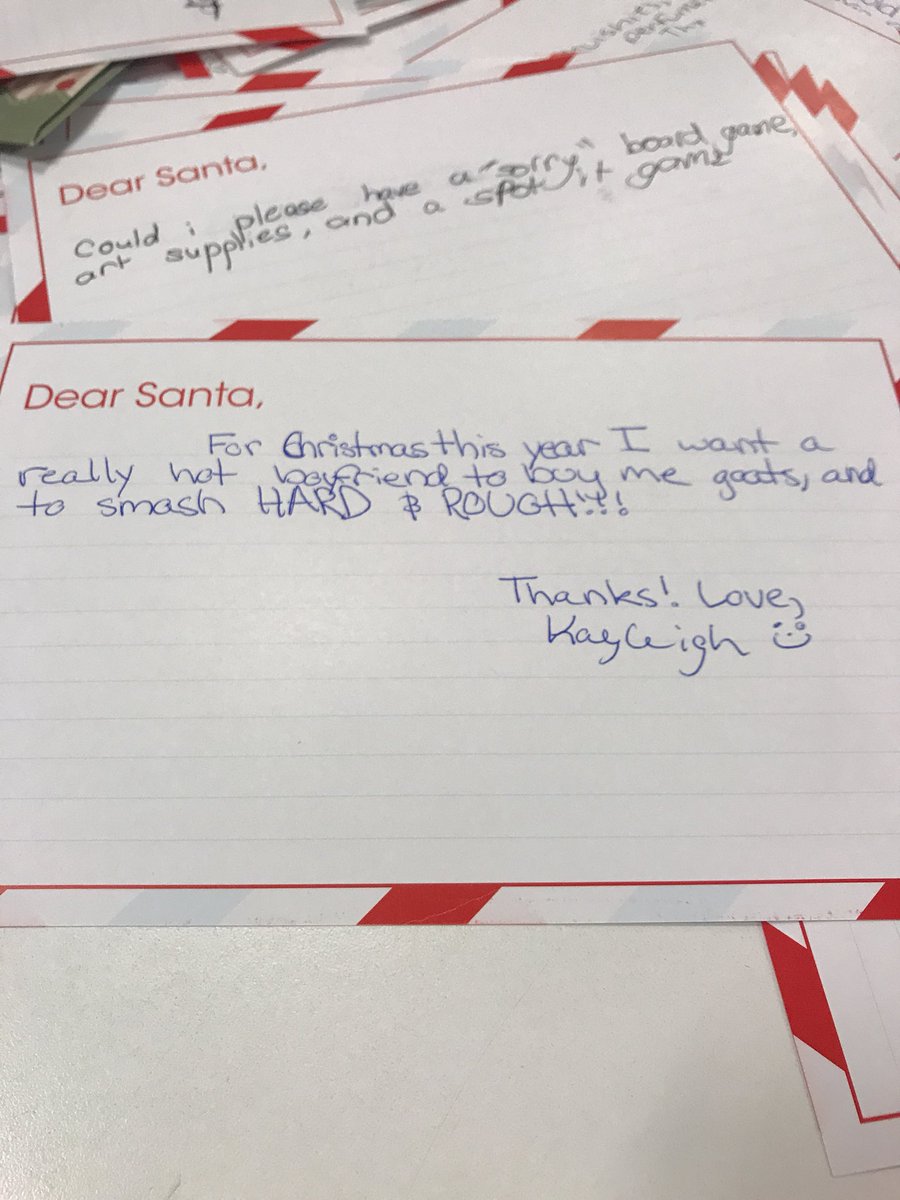 Dear Santa,
Could i please have a "sorry" board game,
art supplies, and a spot it game
Dear Santa,
For Christmas this year I want a
really hot boyfriend to buy me goats, and
to smash HARD & ROUGH!!!
Thanks! Love,
Kayleigh